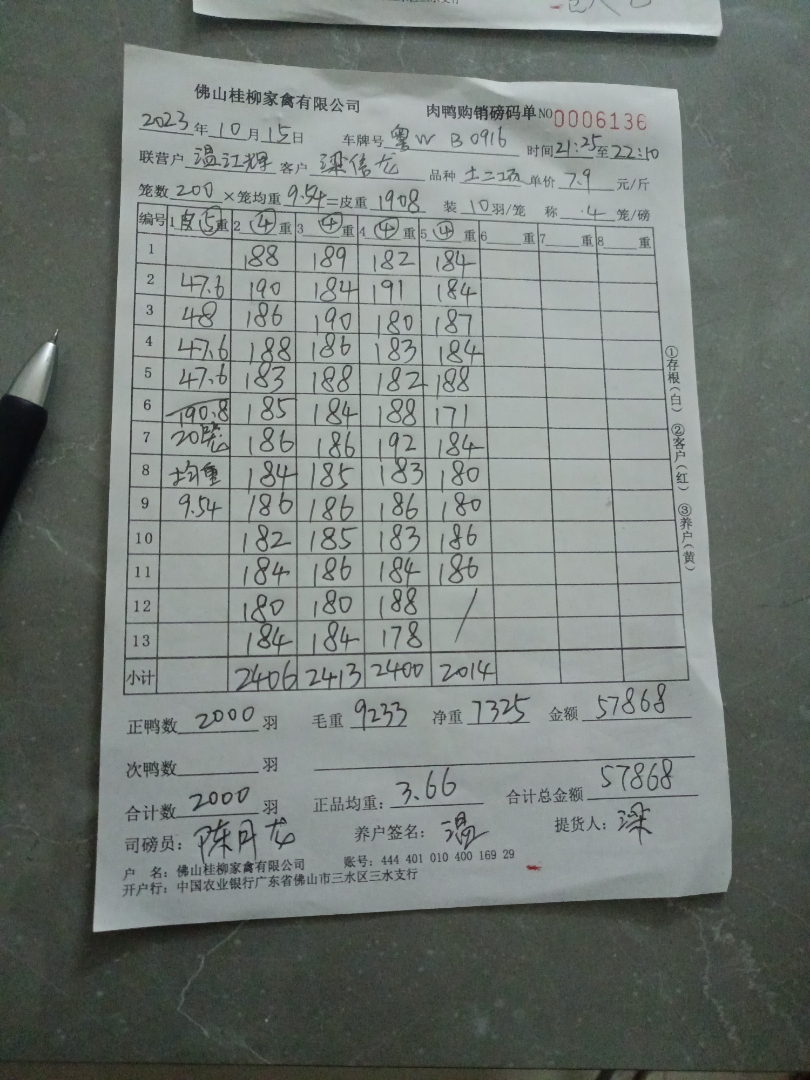 佛山桂柳家禽有限公司 肉鸭购销磅码单 NO 0006136
2023年10月15日 车牌号 粤W B0916 时间21:25至22:10
联营户 温江辉 客户 梁信龙 品种 土二 单价 7.9 元/斤
笼数 200 ×笼均重 9.54 =皮重 1908 装 10 羽/笼 称 4 笼/磅
编号 1 皮⑤重 2 ④重 3 ④重 4 ④重 5 ④重 6 重 7 重 8 重
1 188 189 182 184
2 47.6 190 184 191 184
3 48 186 190 180 187
4 47.6 188 186 183 184
5 47.6 183 188 182 188
6 190.8 185 184 188 171
7 20笼 186 186 192 184
8 均重 184 185 183 180
9 9.54 186 186 186 180
10 182 185 183 186
11 184 186 184 186
12 180 180 188 /
13 184 184 178
小计 2406 2413 2400 2014
①存根(白) ②客户(红) ③养户(黄)
正鸭数 2000 羽 毛重 9233 净重 7325 金额 57868
次鸭数 羽
合计数 2000 羽 正品均重: 3.66 合计总金额 57868
司磅员: 陈月龙 养户签名: 温 提货人: 梁
户 名: 佛山桂柳家禽有限公司 账号: 444 401 010 400 169 29
开户行: 中国农业银行广东省佛山市三水区三水支行